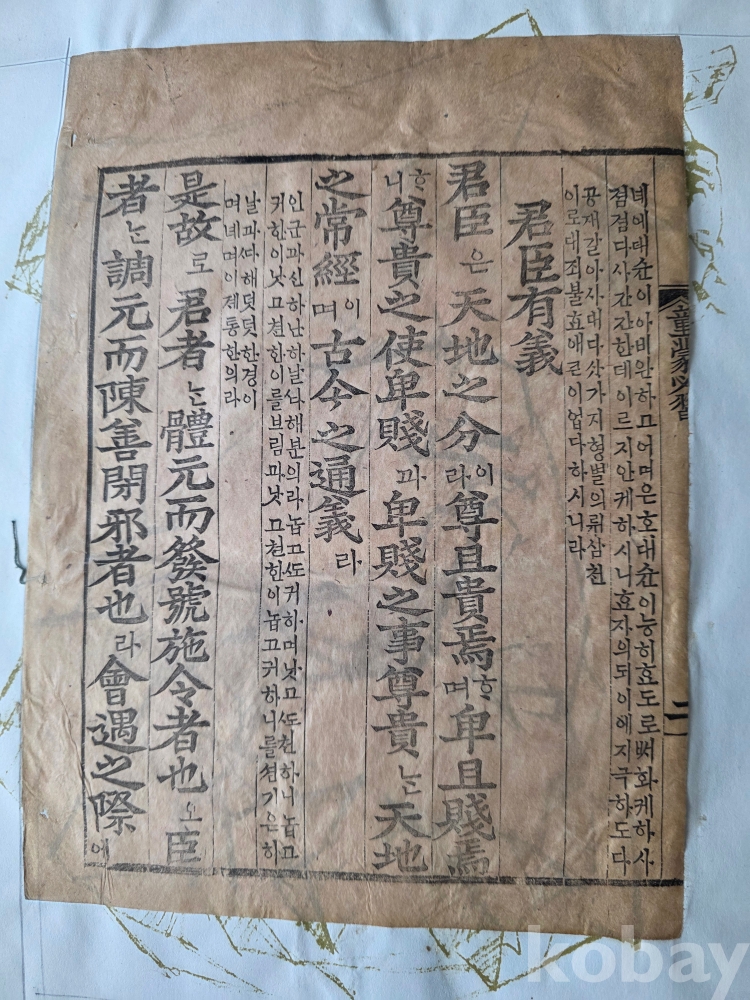 童蒙必習
二
녜에대슌이아비완하고어미은호대슌이능히효도로뻐화케하사
졈졈다사가간한데이르지안케하시니효자의되이에지극하도다
공재갈아사대다삿가지형벌의류삼쳔
이로대죄불효애큰이업다하시니라
君臣有義
君臣은天地之分이라尊且貴焉하며卑且賤焉
하니尊貴之使卑賤과卑賤之事尊貴는天地
之常經이며古今之通義라
인군과신하난하날싸해분의라놉고또귀하며낫고또쳔하니놉고
귀한이낫고쳔한이를브림과낫고쳔한이놉고귀하니를셤기은하
날과따해덧덧한경이
며녜며이졔통한의라
是故로君者는體元而發號施令者也오臣
者는調元而陳善閉邪者也라會遇之際에
kobay